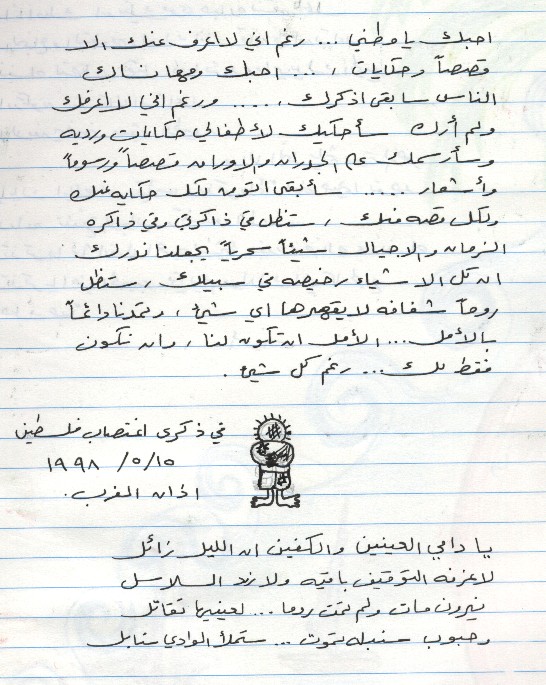 احبك يا وطني ... رغم اني لا اعرف عنك الا
قصصاً وحكايات ، ... احبك ومهما نساك
الناس سابقى اذكرك ، .... ورغم اني لا اعرفك
ولم أرك سأحكيك لأطفالي حكايات ورديه
وسأرسمك على الجدران والاوراق قصصاً ورسوماً
وأشعار ..... سأبقى اتوق لكل حكايه عنك
ولكل قصه منك ، ستظل في ذاكرتي وفي ذاكره
الزمان والاجيال شيئاً سحرياً يجعلنا ندرك
ان كل الاشياء رخيصه في سبيلك ، ستظل
روحاً شفافه لا يقهرها اي شيئ ، وتمدنا دائماً
بالأمل ... الأمل ان تكون لنا ، وان نكون
فقط لك ... رغم كل شيئ .
في ذكرى اغتصاب فلسطين
١٩٩٨ /٥/١٥
اذان المغرب .
يا دامي العينين والكفين ان الليل زائل
لا غرفه التوقيف باقيه ولا زرد السلاسل
نيرون مات ولم تمت روما ... لعينيها تقاتل
وحبوب سنبله تموت ... ستملأ الوادي سنابل